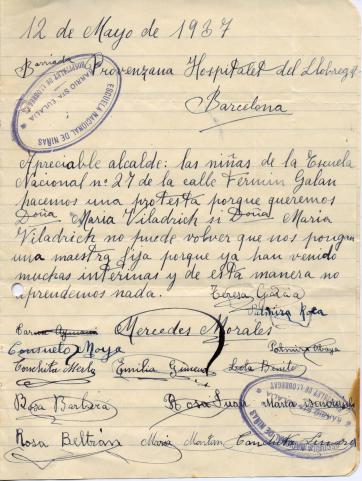 12 de Mayo de 1937
Barriada Provenzana Hospitalet del Llobregat
Barcelona
ESCUELA NACIONAL DE NIÑAS
BARRIO STA EULALIA
HOSPITALET DE LLOBREGAT
Apreciable alcalde: las niñas de la Escuela
Nacional nº 27 de la calle Fermin Galan
hacemos una protesta porque queremos
Doña Maria Viladrich si Doña Maria
Viladrich no puede volver que nos pongan
una maestra fija porque ya han venido
muchas interinas y de esta manera no
aprendemos nada.
Teresa Galcia
Palmira Roca
Carmen
Mercedes Morales
Consuelo Moya
Palmira
Conchita Merlo Emilia Gimeno Lola Benito
Rosa Barbará Rosa Juan Maria
Rosa Beltrán Maria Conchita Linares
ESCUELA NACIONAL DE NIÑAS
BARRIO STA EULALIA
HOSPITALET DE LLOBREGAT